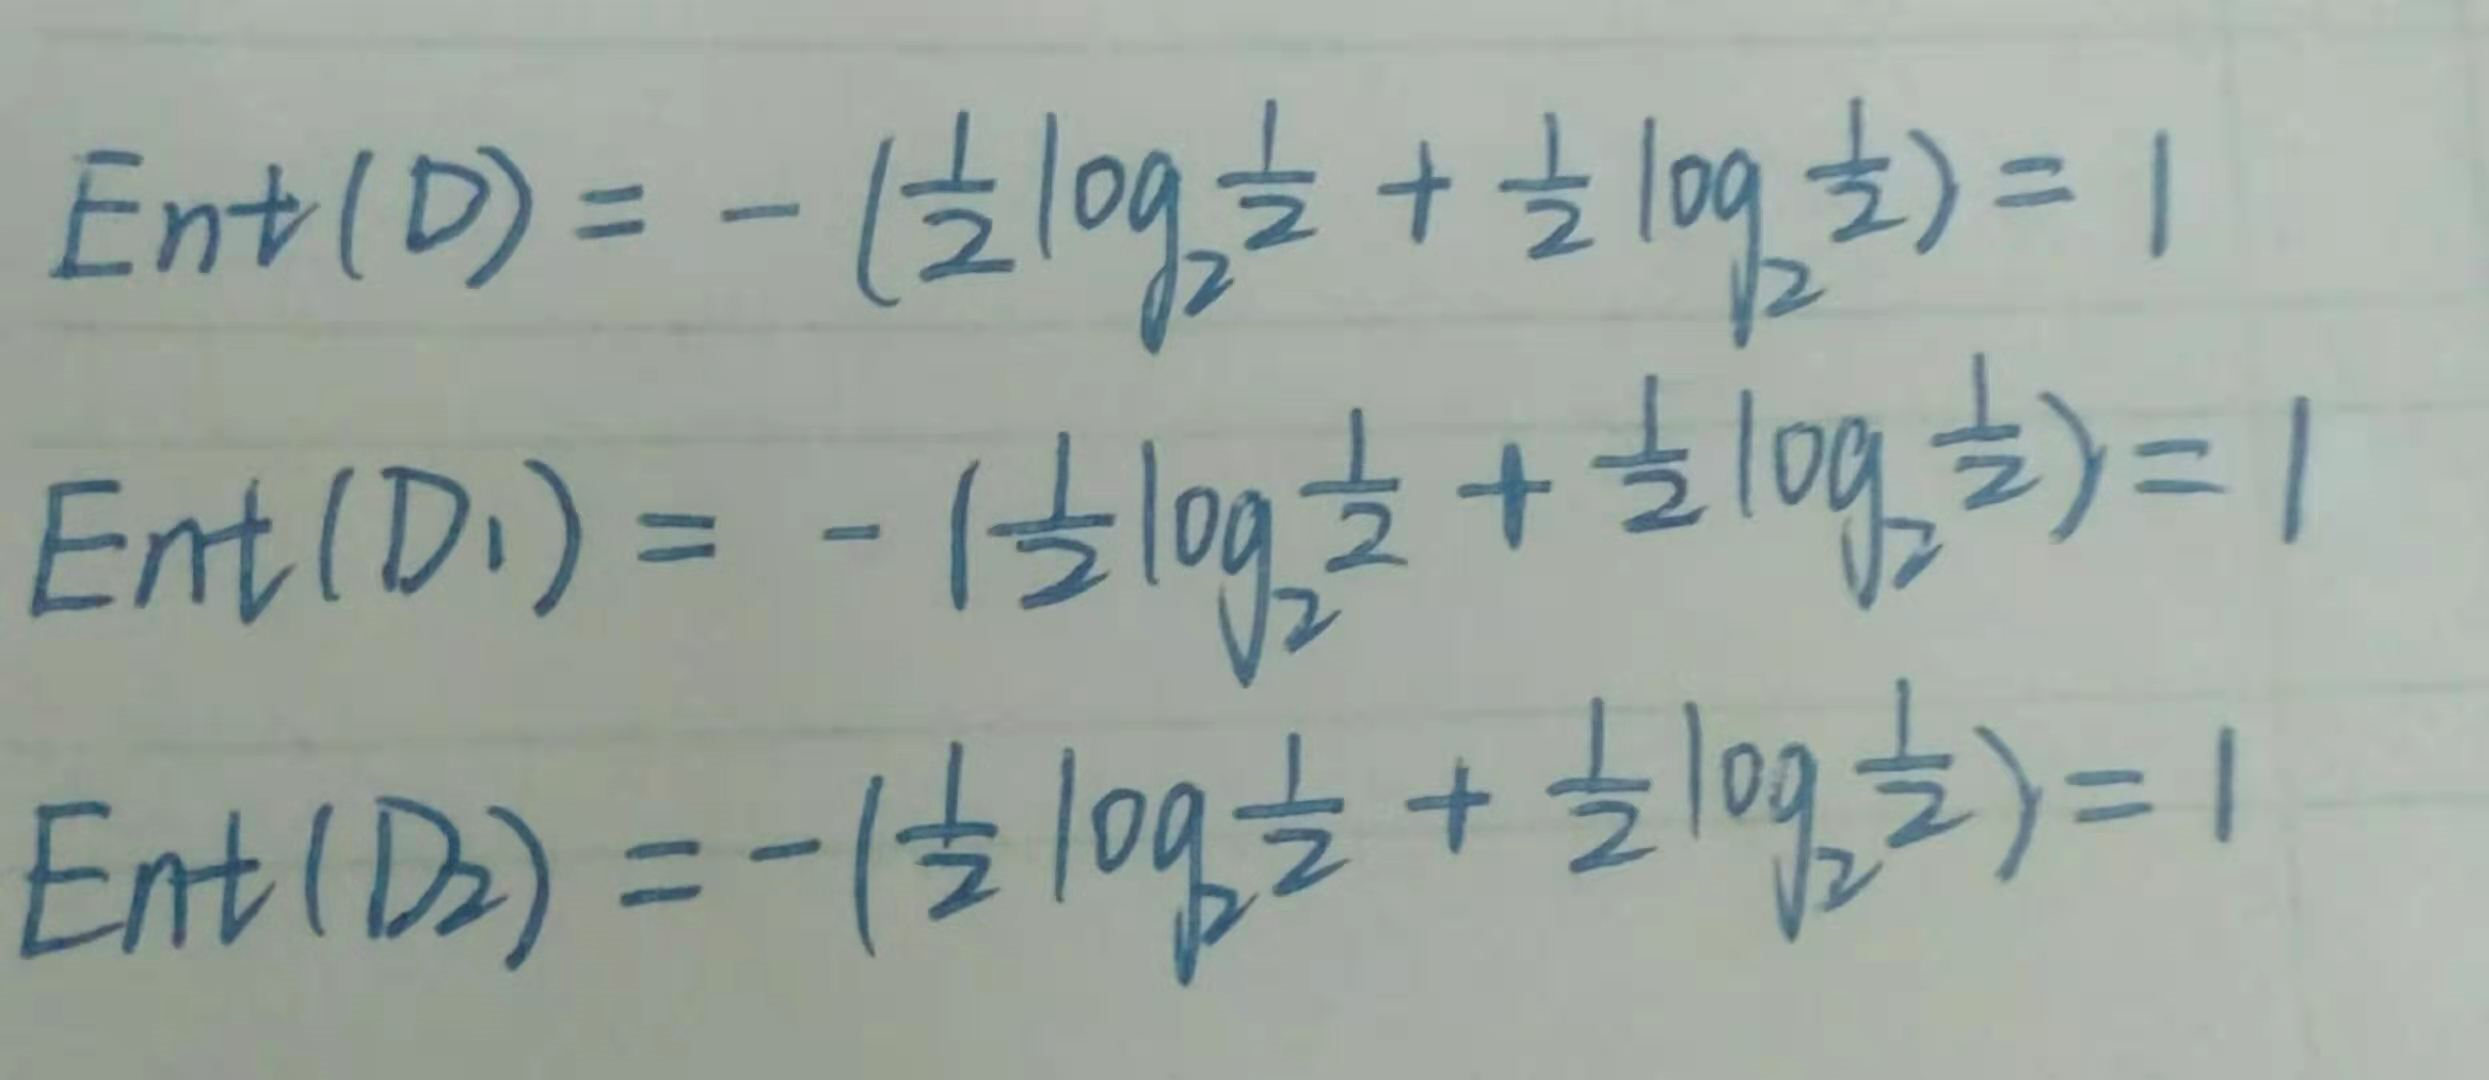 Ent(D) = - (1/2 log₂ 1/2 + 1/2 log₂ 1/2) = 1
Ent(D₁) = - (1/2 log₂ 1/2 + 1/2 log₂ 1/2) = 1
Ent(D₂) = - (1/2 log₂ 1/2 + 1/2 log₂ 1/2) = 1